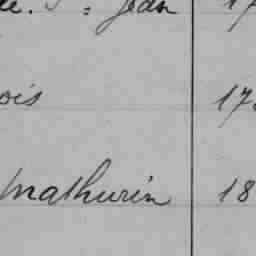 Jean 17
ois 17
Mathurin 18